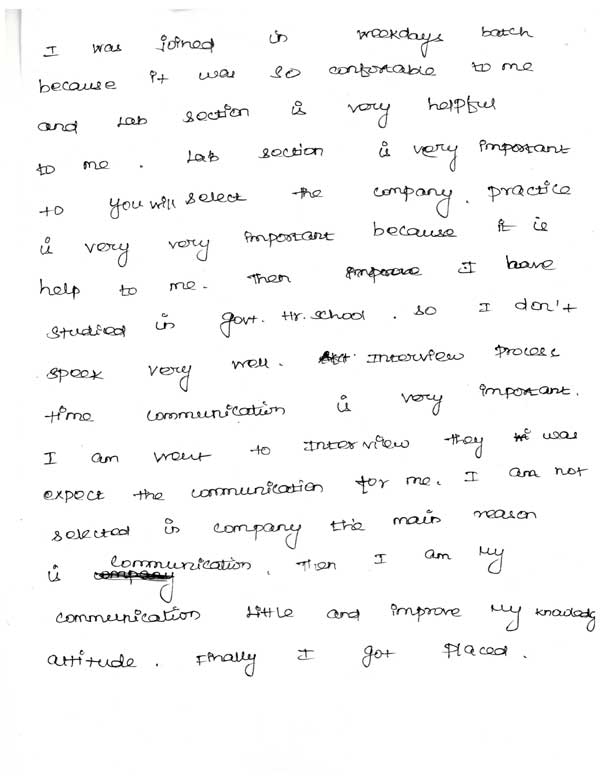 I was joined in weekdays batch
because it was so confortable to me
and Lab section is very helpful
to me. Lab section is very important
to you will select the company. practice
is very very important because it is
help to me. Then improve I have
studied in govt. Hr. school. so I don't
speek very well. Interview process
time communication is very important.
I am went to Interview they was
expect the communication for me. I am not
selected in company the main reason
is communication. Then I am My
communication little and improve My
attitude. Finally I got Placed.